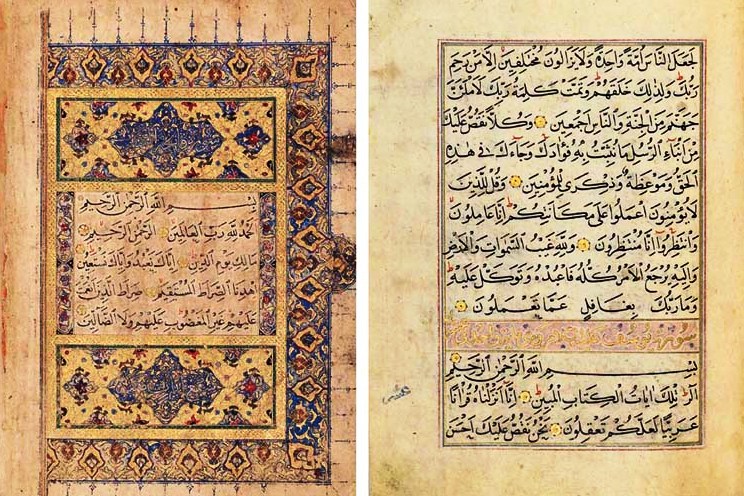 بِسْمِ اللّٰهِ الرَّحْمٰنِ الرَّحِيمِ
الْحَمْدُ لِلّٰهِ رَبِّ الْعَالَمِينَ الرَّحْمٰنِ الرَّحِيمِ
مَالِكِ يَوْمِ الدِّينِ اِيَّاكَ نَعْبُدُ وَاِيَّاكَ نَسْتَعِينُ
اهْدِنَا الصِّرَاطَ الْمُسْتَقِيمَ صِرَاطَ الَّذِينَ اَنْعَمْتَ
عَلَيْهِمْ غَيْرِ الْمَغْضُوبِ عَلَيْهِمْ وَلَا الضَّالِّينَ
لَجَعَلَ النَّاسَ اُمَّةً وَاحِدَةً وَلَا يَزَالُونَ مُخْتَلِفِينَ اِلَّا مَنْ رَحِمَ
رَبُّكَ وَلِذٰلِكَ خَلَقَهُمْ وَتَمَّتْ كَلِمَةُ رَبِّكَ لَاَمْلَئَنَّ
جَهَنَّمَ مِنَ الْجِنَّةِ وَالنَّاسِ اَجْمَعِينَ وَكُلًّا نَقُصُّ عَلَيْكَ
مِنْ اَنْبَاءِ الرُّسُلِ مَا نُثَبِّتُ بِهِ فُؤَادَكَ وَجَاءَكَ فِي هٰذِهِ
الْحَقُّ وَمَوْعِظَةٌ وَذِكْرٰى لِلْمُؤْمِنِينَ وَقُلْ لِلَّذِينَ
لَا يُؤْمِنُونَ اعْمَلُوا عَلٰى مَكَانَتِكُمْ اِنَّا عَامِلُونَ
وَانْتَظِرُوا اِنَّا مُنْتَظِرُونَ وَلِلّٰهِ غَيْبُ السَّمٰوَاتِ وَالْاَرْضِ
وَاِلَيْهِ يُرْجَعُ الْاَمْرُ كُلُّهُ فَاعْبُدْهُ وَتَوَكَّلْ عَلَيْهِ
وَمَا رَبُّكَ بِغَافِلٍ عَمَّا تَعْمَلُونَ
سورة يوسف
بِسْمِ اللّٰهِ الرَّحْمٰنِ الرَّحِيمِ
الٓرٰ تِلْكَ اٰيَاتُ الْكِتَابِ الْمُبِينِ اِنَّا اَنْزَلْنَاهُ قُرْاٰنًا
عَرَبِيًّا لَعَلَّكُمْ تَعْقِلُونَ نَحْنُ نَقُصُّ عَلَيْكَ اَحْسَنَ